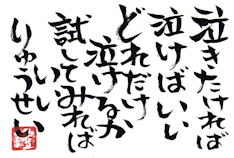 泣きたければ
泣けばいい
どれだけ
泣けるか
試してみれば
いい
りゅうせい